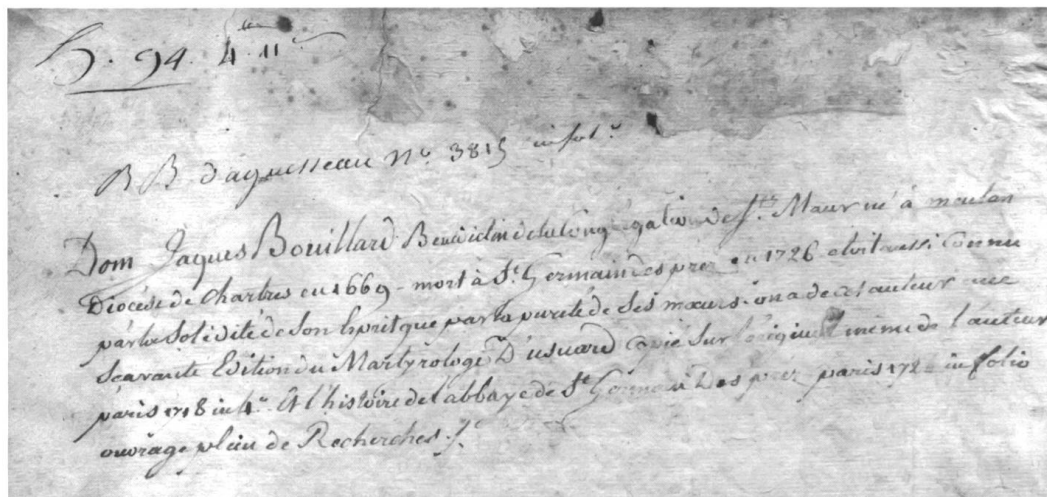 h. 94. 4 11
B B. daguesseau n.º 3815 in fol.º
Dom Jaques Bouillard Benedictin de la Congrégation de St. Maur né à meulan
Diocèse de Chartres en 1669 - mort à St. Germain des prez en 1726 etoit aussi connu
par la solidité de son Esprit que par la pureté de ses mœurs. on a de cet auteur une
Scavante Edition du Martyrologe D'usuard copié sur l'original même de l'auteur
paris 1718 in 4.º Et l'histoire de l'abbaye de St. Germain Des prez paris in folio
ouvrage plein de Recherches.